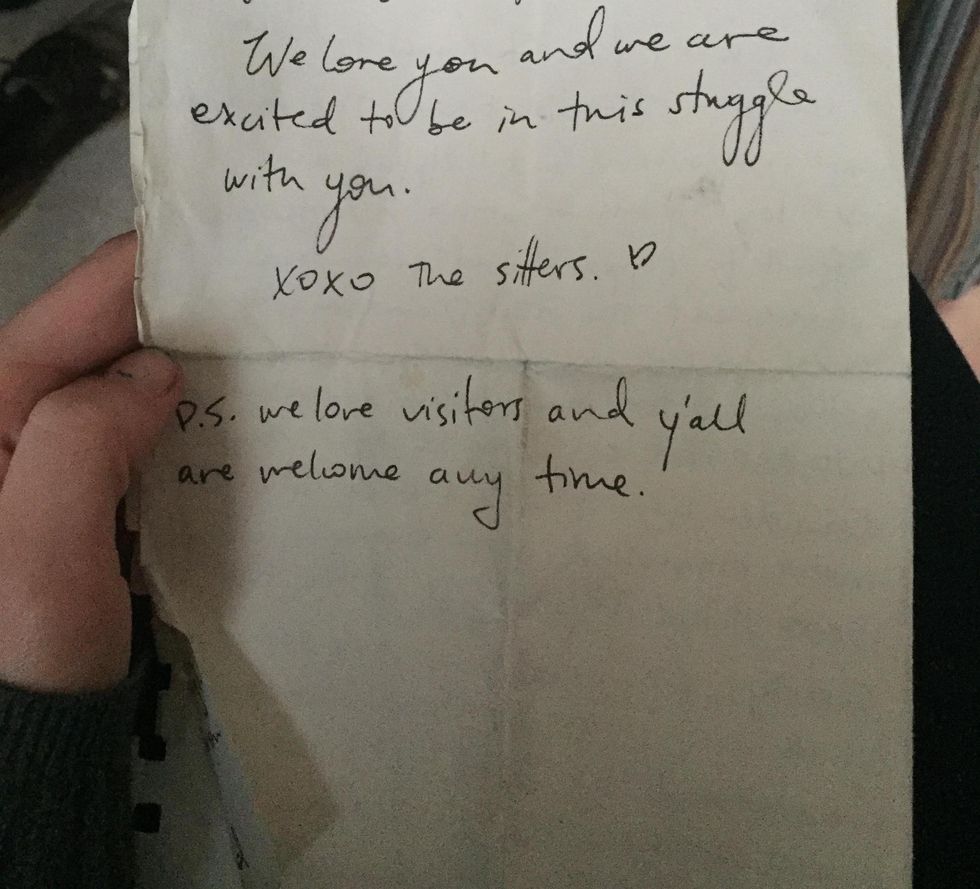 We love you and we are
excited to be in this struggle
with you.
XOXO The sitters. ♡
P.S. we love visitors and y'all
are welcome any time.